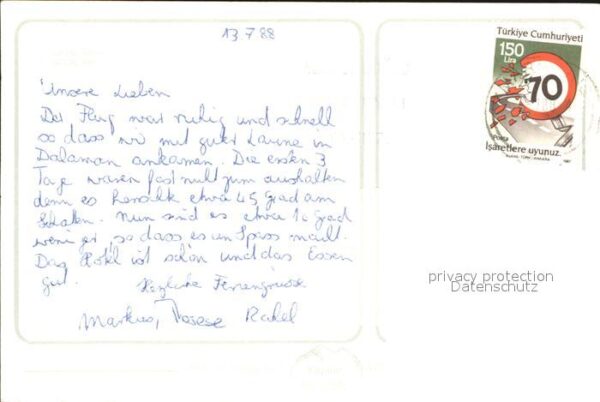 13.7.88
Unsere Lieben
Der Flug war ruhig und schnell
so dass wir mit guter Laune in
Dalaman ankamen. Die ersten 3
Tage waren fast nicht zum aushalten
denn es herschte etwa 45 Grad am
Schatten. Nun sind es etwa 10 Grad
weniger, so dass es un Spass macht.
Das Hotel ist schön und das Essen
gut. Herzliche Feriengrüsse
Markus, Rahel
Türkiye Cumhuriyeti
150
Lira
70
Posta
İşaretlere uyunuz.
privacy protection
Datenschutz